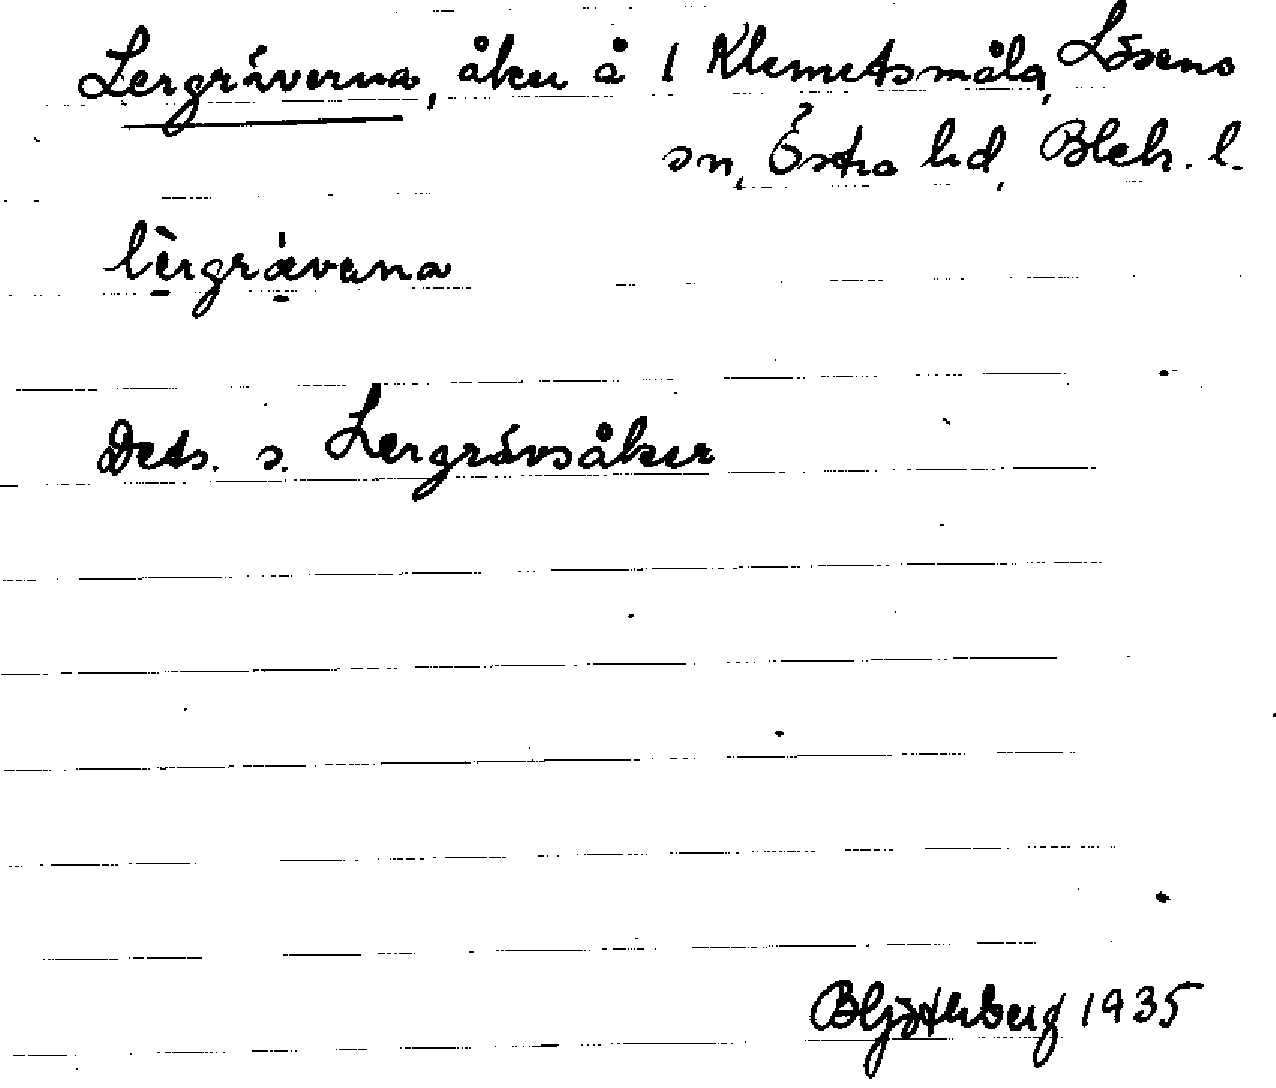 Lergräverna, åker å 1 Klemetsmåla, Lösens
sn, Östra hd, Blek. l.
lèrgrǽvena
Dets. s. Lergrävsåker
1935